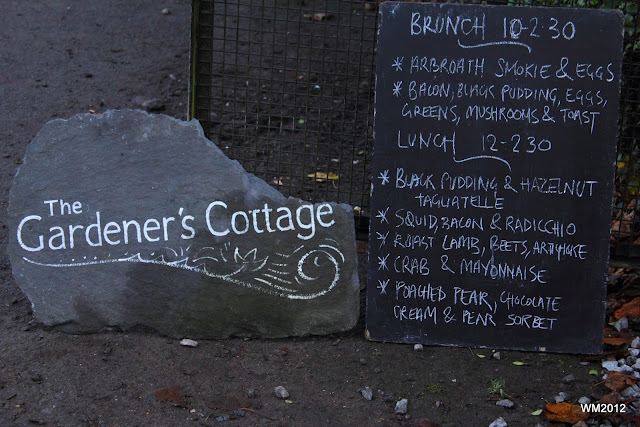 The
Gardener's Cottage
BRUNCH 10-2·30
* ARBROATH SMOKIE & EGGS
* BACON, BLACK PUDDING, EGGS,
GREENS, MUSHROOMS & TOAST
LUNCH 12-2·30
* BLACK PUDDING & HAZELNUT
TAGLIATELLE
* SQUID, BACON & RADICCHIO
* ROAST LAMB, BEETS, ARTICHOKE
* CRAB & MAYONNAISE
* POACHED PEAR, CHOCOLATE
CREAM & PEAR SORBET
WM2012